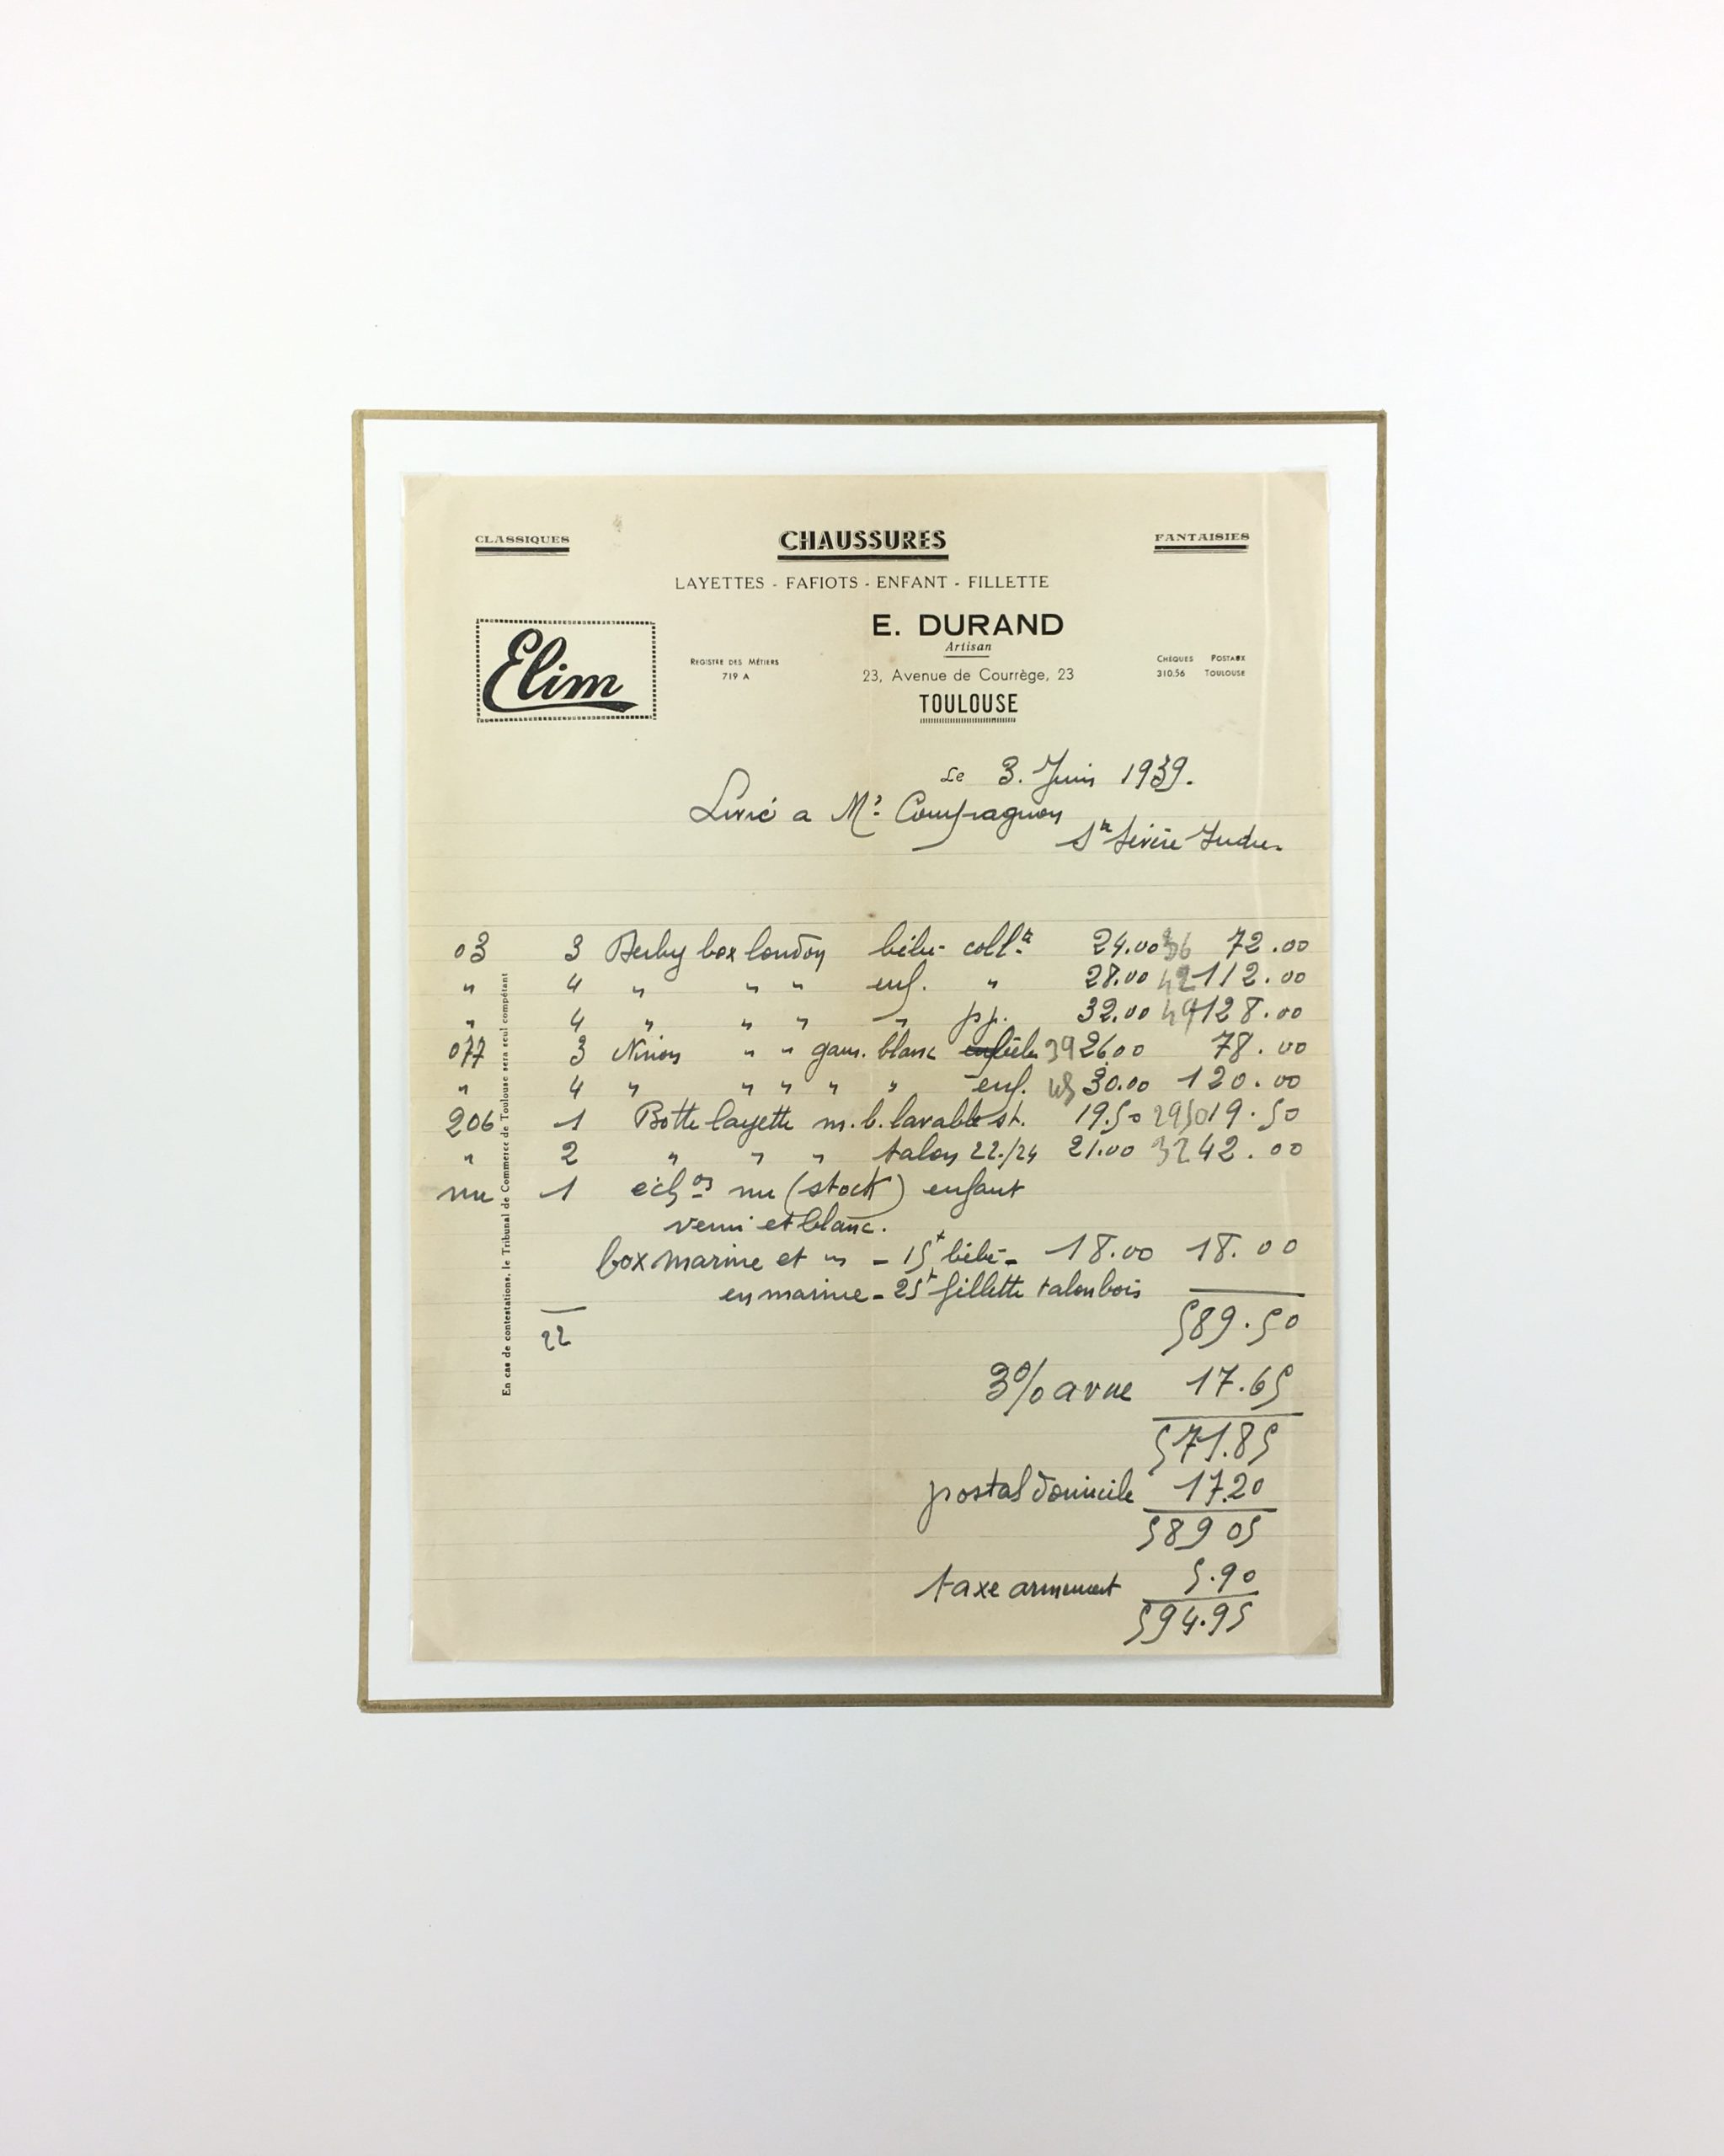 CLASSIQUES CHAUSSURES FANTAISIES
LAYETTES - FAFIOTS - ENFANT - FILLETTE
Elim
E. DURAND
Artisan
REGISTRE DES MÉTIERS
719 A
23, Avenue de Courrège, 23
TOULOUSE
CHÈQUES POSTAUX
310.56 TOULOUSE
Le 3. Juin 1939.
Livré a Mr Compagnon
Ste Sévère Indre.
En cas de contestations, le Tribunal de Commerce de Toulouse sera seul compétant
03 3 Derby box london bébé collte 24.00 36 72.00
" 4 " " " enf. " 28.00 42 112.00
" 4 " " " " pp. 32.00 49 128.00
077 3 Ninon " " garn. blanc bébé 39 26.00 78.00
" 4 " " " " " enf. 45 30.00 120.00
206 1 Botte layette m. b. lavable st. 19.50 2950 19.50
" 2 " " " talon 22./24 21.00 32 42.00
nu 1 échons nu (stock) enfant
verni et blanc.
box marine et " - 15t bébé - 18.00 18.00
en marine - 25t fillette talon bois
22 589.50
3% a vue 17.65
571.85
postal domicile 17.20
589 05
taxe armement 5.90
594.95